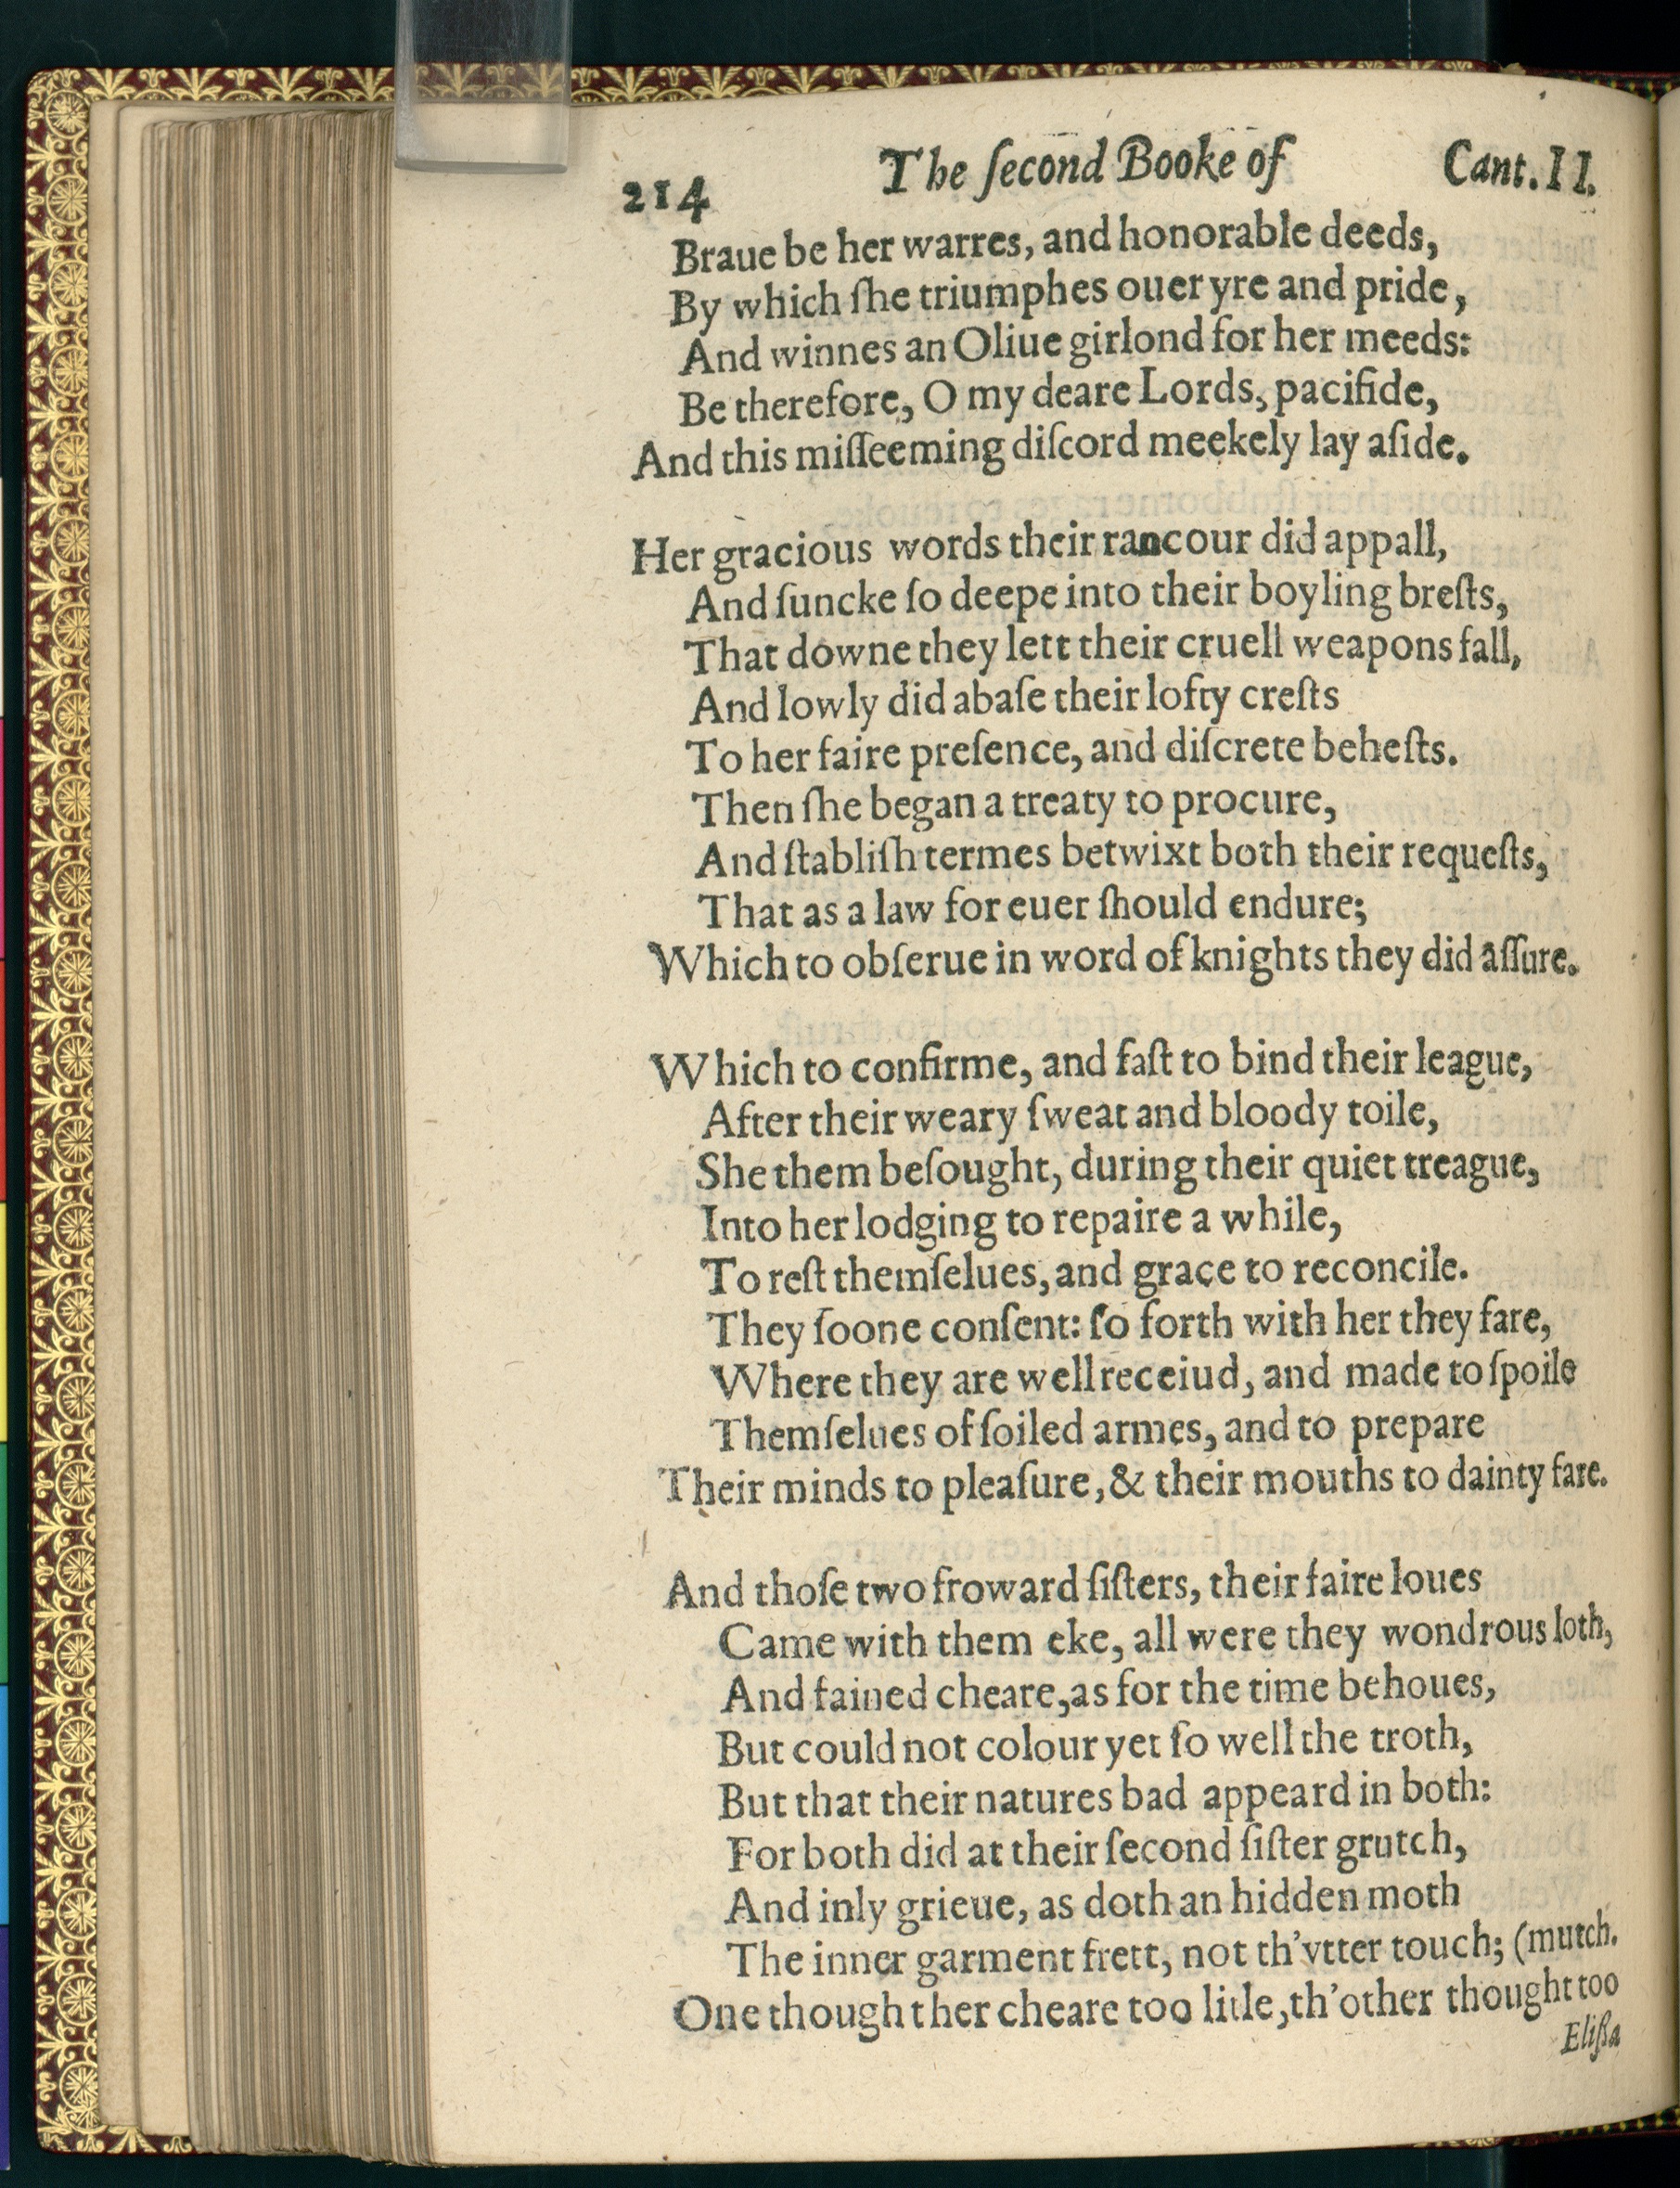 214 The ſecond Booke of Cant. II.
Braue be her warres, and honorable deeds,
By which ſhe triumphes ouer yre and pride,
And winnes an Oliue girlond for her meeds:
Be therefore, O my deare Lords, pacifide,
And this miſſeeming diſcord meekely lay aſide.
Her gracious words their rancour did appall,
And ſuncke ſo deepe into their boyling breſts,
That downe they lett their cruell weapons fall,
And lowly did abaſe their lofty creſts
To her faire preſence, and diſcrete beheſts.
Then ſhe began a treaty to procure,
And ſtabliſh termes betwixt both their requeſts,
That as a law for euer ſhould endure;
Which to obſerue in word of knights they did aſſure.
Which to confirme, and faſt to bind their league,
After their weary ſweat and bloody toile,
She them beſought, during their quiet treague,
Into her lodging to repaire a while,
To reſt themſelues, and grace to reconcile.
They ſoone conſent: ſo forth with her they fare,
Where they are well receiud, and made to ſpoile
Themſelues of ſoiled armes, and to prepare
Their minds to pleaſure, & their mouths to dainty fare.
And thoſe two froward ſiſters, their faire loues
Came with them eke, all were they wondrous loth,
And fained cheare, as for the time behoues,
But could not colour yet ſo well the troth,
But that their natures bad appeard in both:
For both did at their ſecond ſiſter grutch,
And inly grieue, as doth an hidden moth
The inner garment frett, not th'vtter touch; (mutch.
One thought her cheare too litle, th'other thought too
Eliſſa